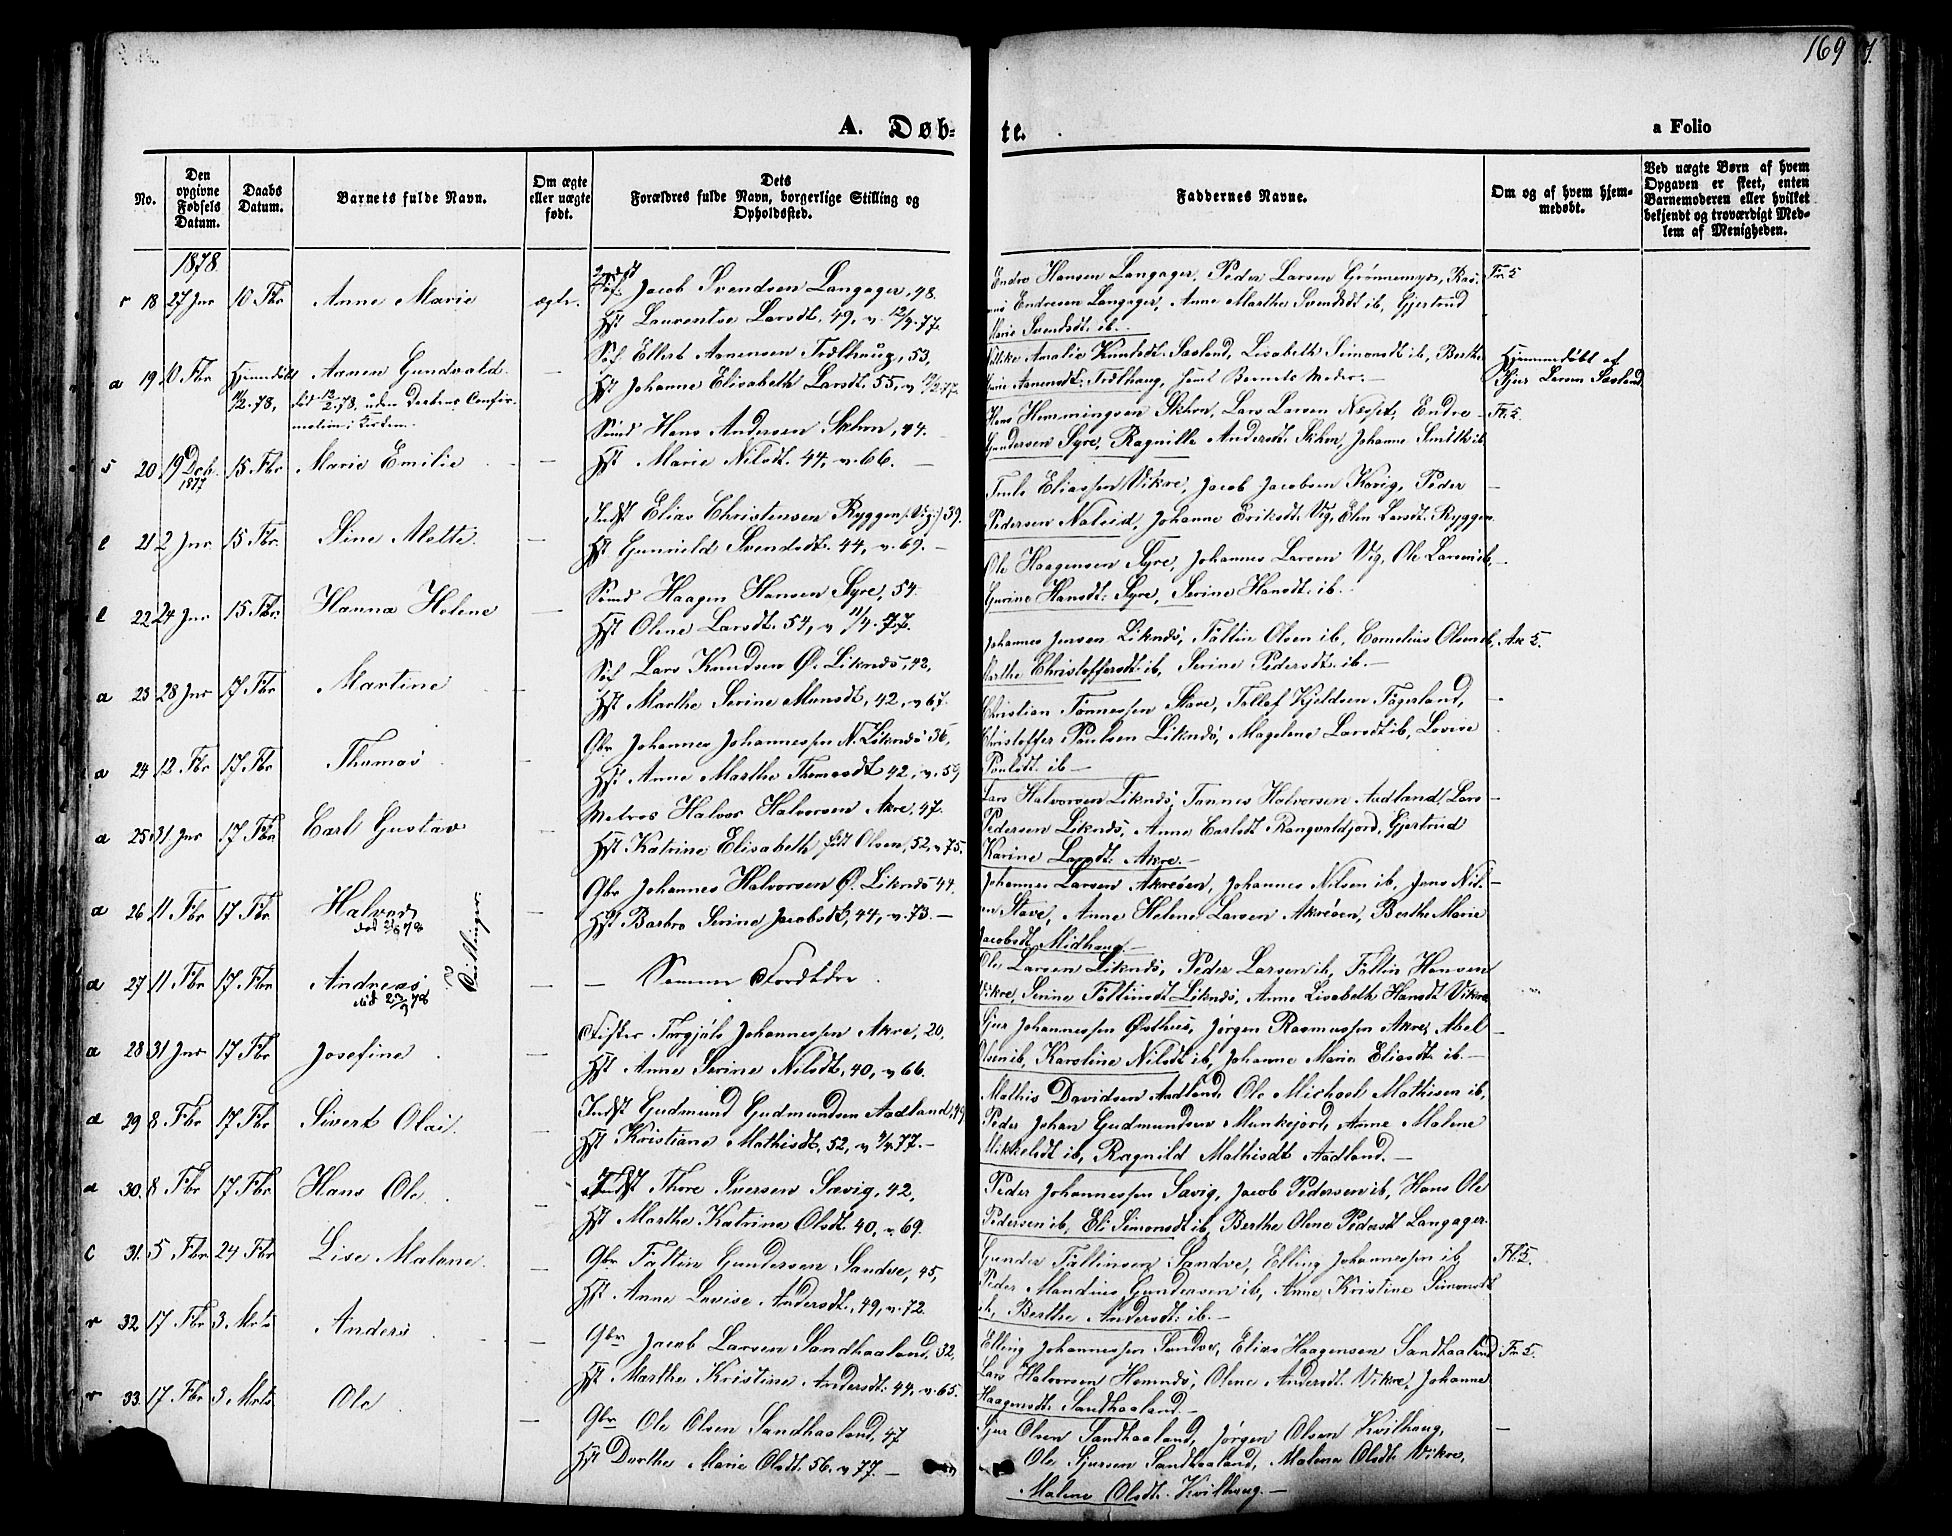 169
A. Døb-
te.
a Folio
No.
Den opgivne Fødsels Datum.
Daabs Datum.
Barnets fulde Navn.
Om ægte eller uægte født.
Dets Forældres fulde Navn, borgerlige Stilling og Opholdssted.
Faddernes Navne.
Om og af hvem hjemmedøbt.
Ved uægte Børn af hvem Opgaven er skeet, enten Barnemoderen eller hvilket bekjendt og troværdigt Medlem af Menigheden.
1878
r 18 27 Jnr 10 Fbr Anne Marie ægte.
Jacob Svendsen Langager, 48.
Hst Laurentse Larsdt. 49, v. 12/4 77.
Endre Hansen Langager, Peder Larsen Grønnemyr, Ras-
mus Endresen Langager, Anne Marthe Svendsdt ib, Gjertrud
Marie Svendsdt. ib.
Fr. 5
a 19 10 Fbr Hjemmedøbt 11/2 78, Aanen Gundvald. —
død 12/2 78, uden Daabens Confir-
mation i Kirken.
Søf Ellert Aanensen Trælhaug, 53,
Hst Johanne Elisabeth Larsdt. 55, v 12/2 77.
Amalie Knutsdt. Sæland, Lisabeth Simonsdt ib, Berthe
Marie Aanensdt. Trælhaug, samt Barnets Moder. —
Hjemmedøbt af
Sjur Larsen Sæland.
s 20 19 Deb. 1877 15 Fbr Marie Emilie —
Sømd Hans Andersen Skhvn, 44. —
Hst Marie Nilsdt. 44, v. 66. —
Hans Hemmingsen Skhvn, Lars Larsen Nesset, Endre
Gundersen Syre, Ragnille Andersdt. Skhvn, Johanne Smith ib
Fl. 5
l 21 2 Jnr 15 Fbr. Sine Mette. —
Indst Elias Christensen Ryggen (Vig.) 39.
Hst Gunnild Svendsdt. 44, v. 69. —
Eliassen Vikre, Jacob Jacobsen Kvrig, Peder
Pedersen Nalvid, Johanne Eriksdt. Vig, Elen Larsdt. Ryggen. —
l 22 24 Jnr 15 Fbr. Hanna Helene —
Sømd Haagen Hansen Syre, 54.
Hst Olene Larsdt. 54, v 11/4 77.
Ole Haagensen Syre, Johannes Larsen Vig, Ole Larsen ib, —
Gurine Hansdt. Syre, Serine Hansdt. ib.
a 23 28 Jnr 17 Fbr Martine —
Søf Lars Knudsen Ø. Liknes, 42,
Hst Marthe Serine Monsdt, 42, v 67.
Johannes Jensen Liknes, Faltin Olsen ib, Cornelius Olsen ib,
Marthe Christoffersdt. ib, Serine Pedersdt. ib. —
Aa 5.
a 24 12 Fbr 17 Fbr Thomas —
Gbr Johannes Johannessen N. Liknes 36,
Hst Anne Marthe Thomasdt 42, v. 59
Christian Tønnessen Stave, Tollef Kjeldsen Fagerland, —
Christoffer Paulsen Liknes, Magelene Larsdt ib, Lovise
Poulsdt. ib —
a 25 31 Jnr 17 Fbr Carl Gustav —
Matros Halvor Halvorsen Akre, 47.
Hst Katrine Elisabeth født Olsen, 52, v 75.
Lars Halvorsen Liknes, Tønnes Halvorsen Aadland, Lars —
Pedersen Liknes, Anne Carlsdt. Rangvaldsjord, Gjertrud
Karine Larsdt. Akre. —
a 26 11 Fbr 17 Fbr Halvor —
Tvillinger.
Gbr Johannes Halvorsen Ø. Liknes 44.
Hst Barbro Serine Jacobsdt, 44, v. 73. —
Johannes Larsen Akreøen, Johannes Nilsen ib, Jens Nil- —
sen Stave, Anne Helene Larsen Akreøen, Berthe Marie
Jacobsdt. Midhaug. —
a 27 11 Fbr 17 Fbr. Andreas —
— Samme Forældre.
Ole Larsen Liknes, Peder Larsen ib, Faltin Hansen
Vikre, Serine Faltinsdt Liknes, Anne Lisabeth Hansdt Vikre
a 28 31 Jnr 17 Fbr Josefine —
Fisker Torgjøls Johannessen Akre, 20,
Hst Anne Serine Nilsdt, 40, v 66.
Sjur Johannessen Østhus, Jørgen Rasmussen Akre, Abel —
Olsen ib, Karoline Nilsdt ib, Johanne Marie Eliasdt ib. —
a 29 8 Fbr 17 Fbr Sivert Olai. —
Indst Gudmund Gudmundsen Aadland, 49
Hst Kristiane Mathisdt, 52, v 77. —
Mathis Davidsen Aadland, Ole Michael Mathisen ib,
Peder Johan Gudmundsen Munkejord, Anne Malene
Mikkelsdt ib, Ragnild Mathisdt Aadland. —
a 30. 8 Fbr 17 Fbr Hans Ole —
Indst Thore Iversen Sævig, 42,
Hst Marthe Katrine Olsdt. 40, v. 69.
Peder Johannessen Sævig, Jacob Pedersen ib, Hans Ole
Pedersen ib, Eli Simonsdt ib, Berthe Olene Pedersdt Langager.
c 31. 5 Fbr 24 Fbr Lise Malene. —
Gbr Faltin Gundersen Sandve, 45,
Hst Anne Lovise Andersdt, 49, v. 72.
Gunder Faltinsen Sandve, Elling Johannessen ib,
Peder Mandius Gundersen ib, Anne Kristine Simonsdt
ib, Berthe Andersdt. ib. —
Fl. 5.
r 32 17 Fbr 3 Mrts Anders —
Gbr Jacob Larsen Sandhaaland, 32,
Hst Marthe Kristine Andersdt. 44, v. 65.
Elling Johannessen Sandve, Elias Haagensen Sandhaaland
Lars Halvorsen Hemnes, Olene Andersdt. Vikre, Johanne
Haagensdt. Sandhaaland. —
Fr 5.
r 33. 17 Fbr 3 Mrts. Ole —
Gbr Ole Olsen Sandhaaland, 47
Hst Dorthe Marie Olsdt. 56. v 77. —
Sjur Olsen Sandhaaland, Jørgen Olsen Kvilhaug, —
Ole Sjursen Sandhaaland, Malene Olsdt. Vikre,
Malene Olsdt. Kvilhaug. —